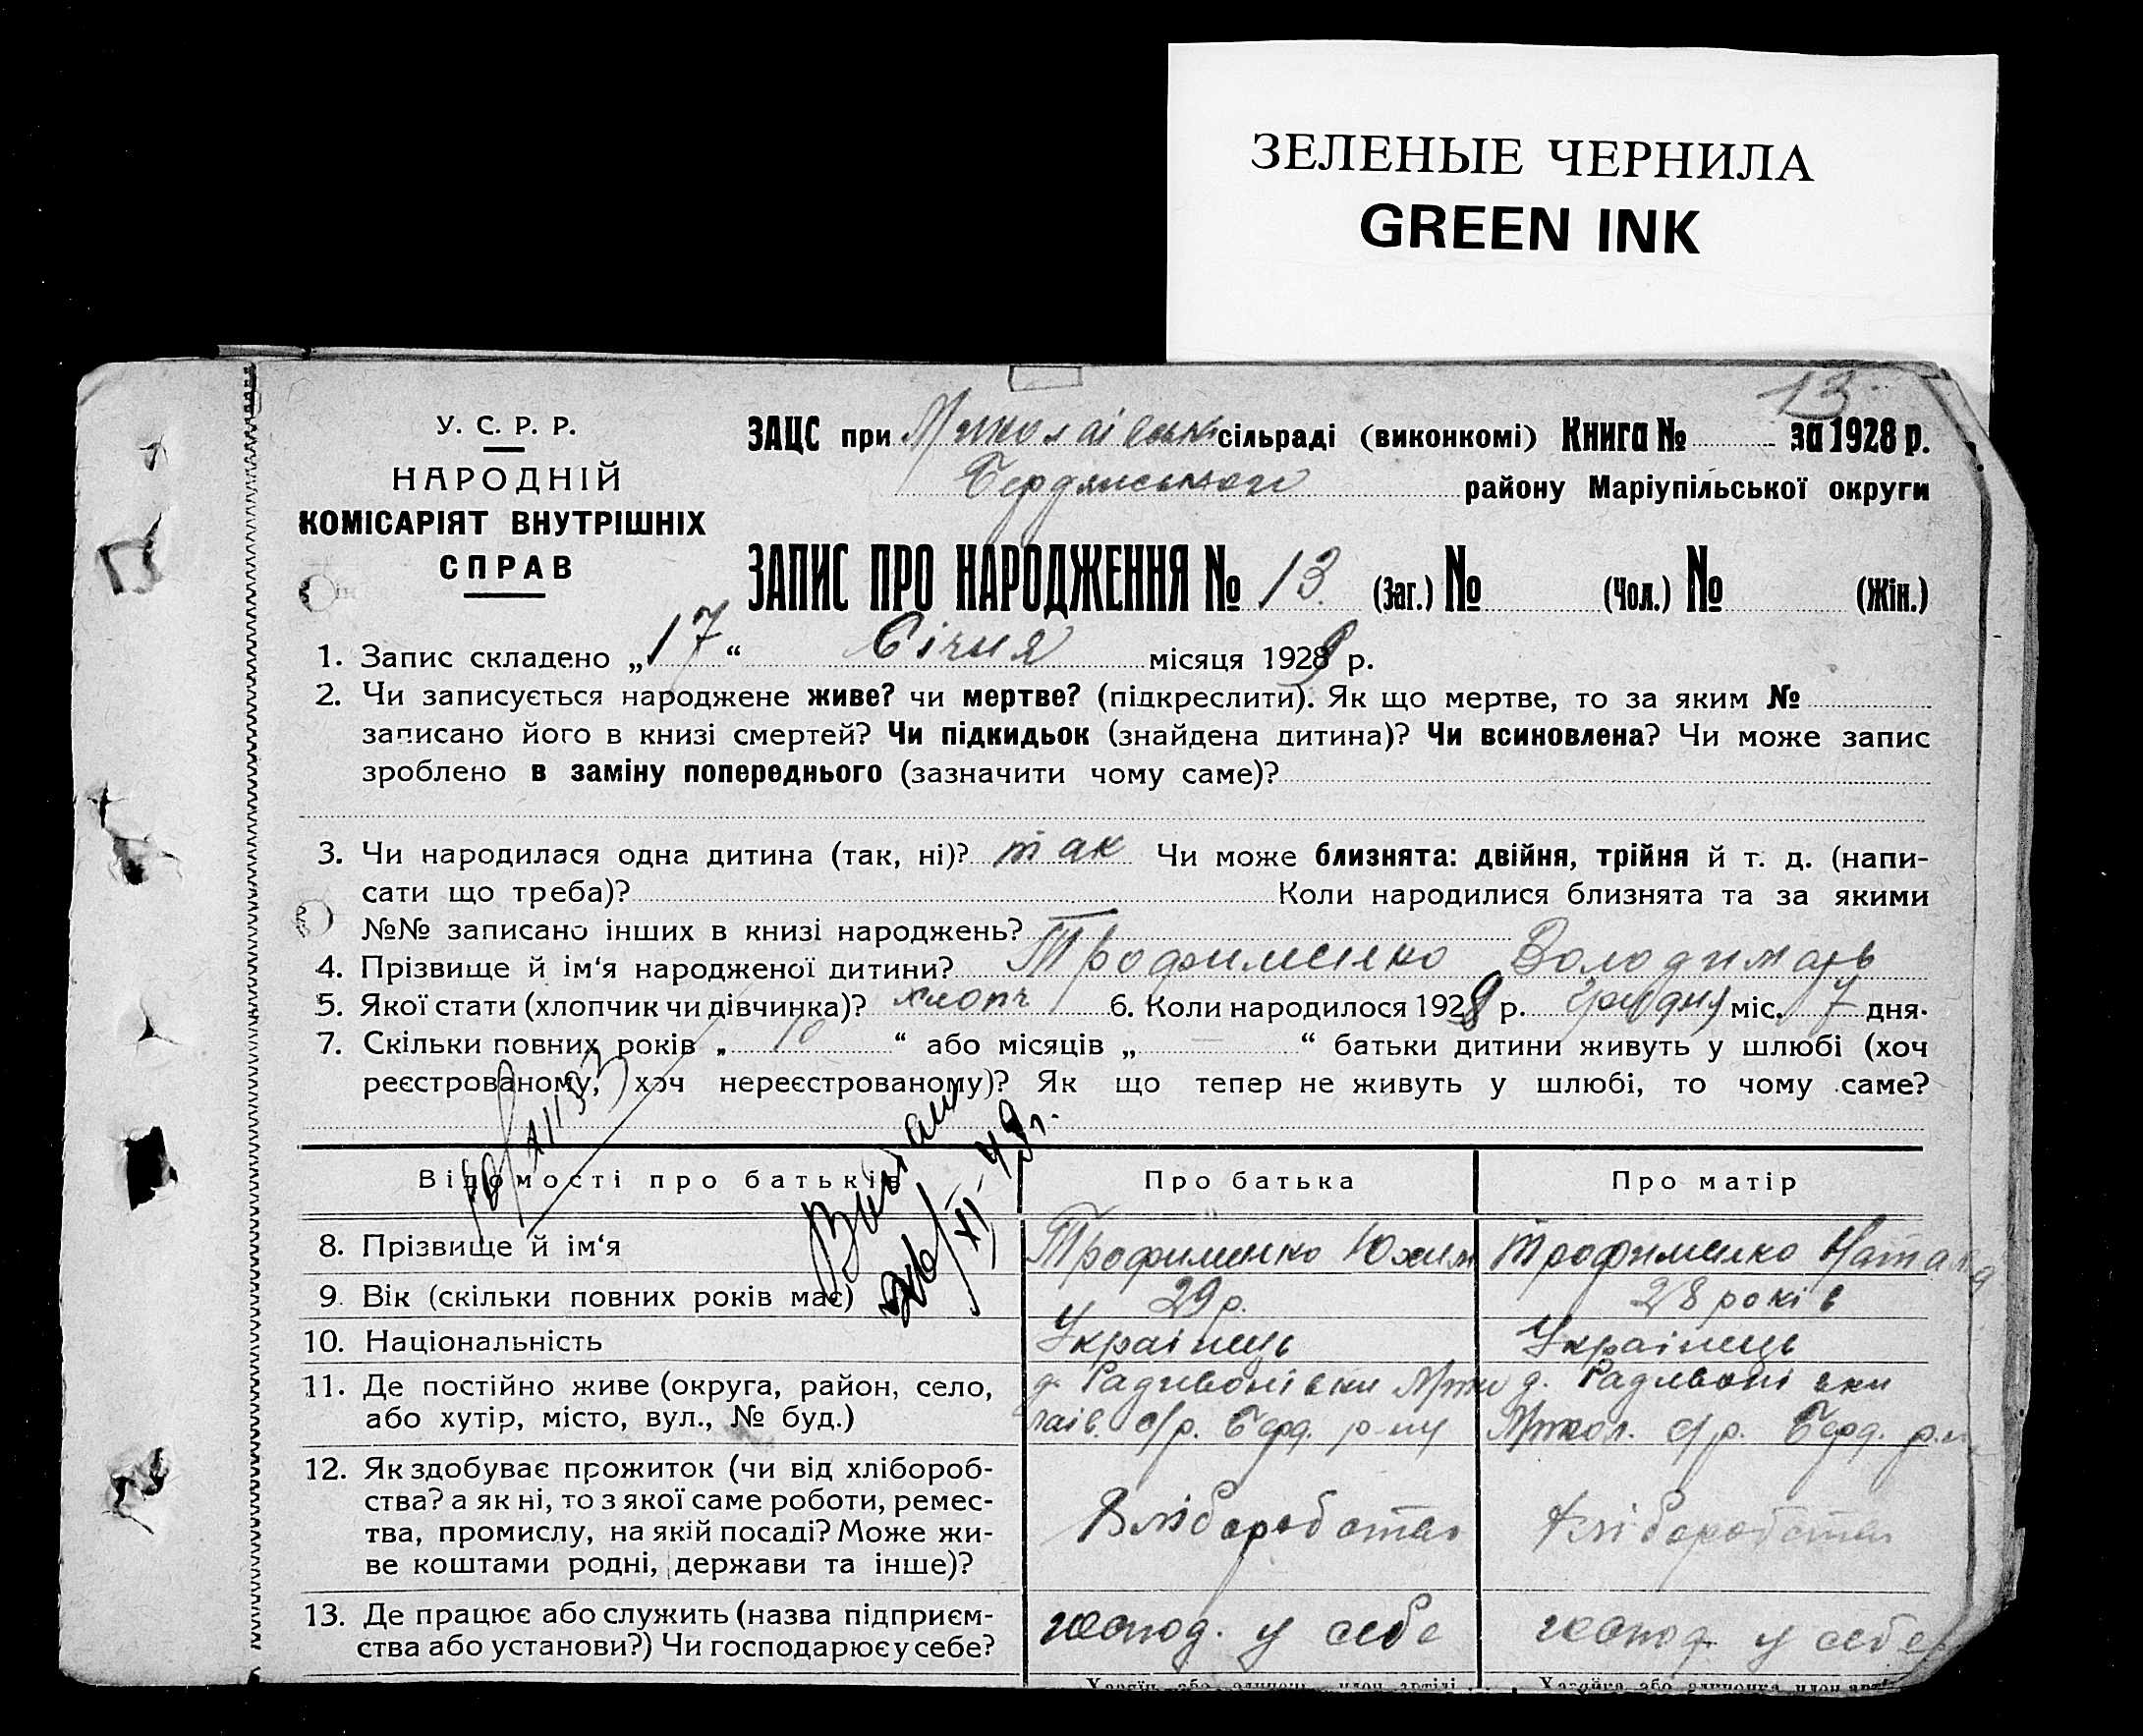 ЗЕЛЕНЫЕ ЧЕРНИЛА
GREEN INK
13
У. С. Р. Р.
НАРОДНІЙ
КОМІСАРІЯТ ВНУТРІШНІХ
СПРАВ
ЗАЦС при Миколаівськ сільраді (виконкомі) Книга № за 1928 р.
Бердянського району Маріупільської округи
ЗАПИС ПРО НАРОДЖЕННЯ № 13 (Заг.) № (Чол.) № (Жін.)
1. Запис складено „17“ Січня місяця 1929 р.
2. Чи записується народжене живе? чи мертве? (підкреслити). Як що мертве, то за яким №
записано його в книзі смертей? Чи підкидьок (знайдена дитина)? Чи всиновлена? Чи може запис
зроблено в заміну попереднього (зазначити чому саме)?
3. Чи народилася одна дитина (так, ні)? так Чи може близнята: двійня, трійня й т. д. (напи-
сати що треба)? Коли народилися близнята та за якими
№№ записано інших в книзі народжень?
4. Прізвище й ім‘я народженої дитини? Трофименко Володимирь
5. Якої стати (хлопчик чи дівчинка)? хлопч 6. Коли народилося 1928 р. грудня міс. 7 дня.
7. Скільки повних років „ 10 “ або місяців „ — “ батьки дитини живуть у шлюбі (хоч
реєстрованому, хоч нереєстрованому)? Як що тепер не живуть у шлюбі, то чому саме?
Відомості про батьків Про батька Про матір
8. Прізвище й ім‘я Трофименко Юхим Трофименко Наталя
9. Вік (скільки повних років має) 29 р. 28 років
26/XI-49 г.
10. Національність Українець Українець
11. Де постійно живе (округа, район, село, д. Радивонівки Мико д. Радивонівки
або хутір, місто, вул., № буд.) лаів. с/р. Берд. р-ну Микол. с/р. Берд. р-н
12. Як здобуває прожиток (чи від хлібороб-
ства? а як ні, то з якої саме роботи, ремес-
тва, промислу, на якій посаді? Може жи-
ве коштами родні, держави та інше)?
13. Де працює або служить (назва підприєм- господ. у себе господ. у себе
ства або установи?) Чи господарює у себе?